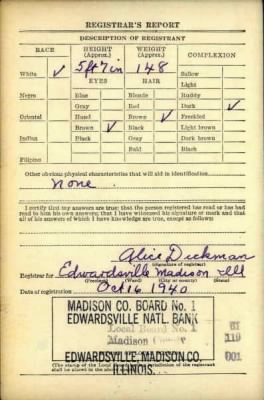 REGISTRAR'S REPORT
DESCRIPTION OF REGISTRANT
RACE HEIGHT (Approx.) WEIGHT (Approx.) COMPLEXION
White ✓ 5 ft 7 in 148 Sallow
EYES HAIR Light
Negro Blue Blonde Ruddy
Gray Red Dark ✓
Oriental Hazel Brown ✓ Freckled
Brown ✓ Black Light brown
Indian Black Gray Dark brown
Bald Black
Filipino
Other obvious physical characteristics that will aid in identification
None
I certify that my answers are true; that the person registered has read or has had
read to him his own answers; that I have witnessed his signature or mark and that
all of his answers of which I have knowledge are true, except as follows:
Alice Dickman
(Signature of registrar)
Registrar for Edwardsville Madison Ill
(Precinct) (Ward) (City or county) (State)
Date of registration Oct 16 1940
MADISON CO. BOARD No. 1
EDWARDSVILLE NAT'L BANK
Local Board No. 1
Madison
119
EDWARDSVILLE, MADISON CO.
001
ILLINOIS.
(The stamp of the Local
shall be placed in the above